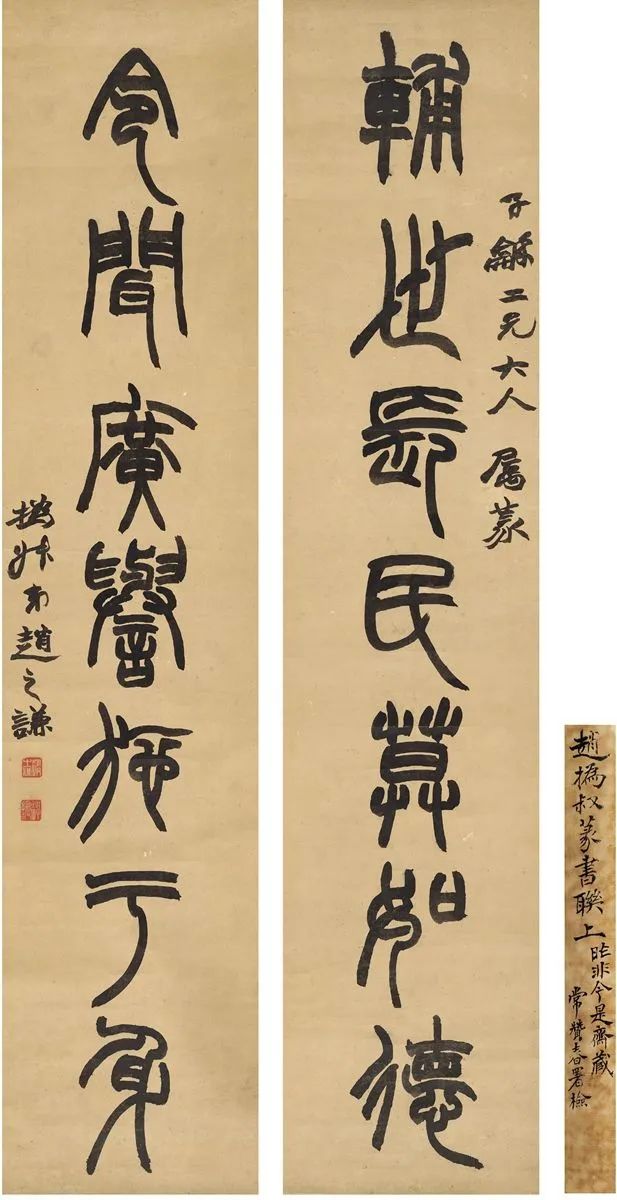 輔世長民莫如德
子龢二兄大人 屬篆
令聞廣譽施于身
撝叔弟趙之謙
趙撝叔篆書聯上
昨非今是齋藏
常贊春署檢